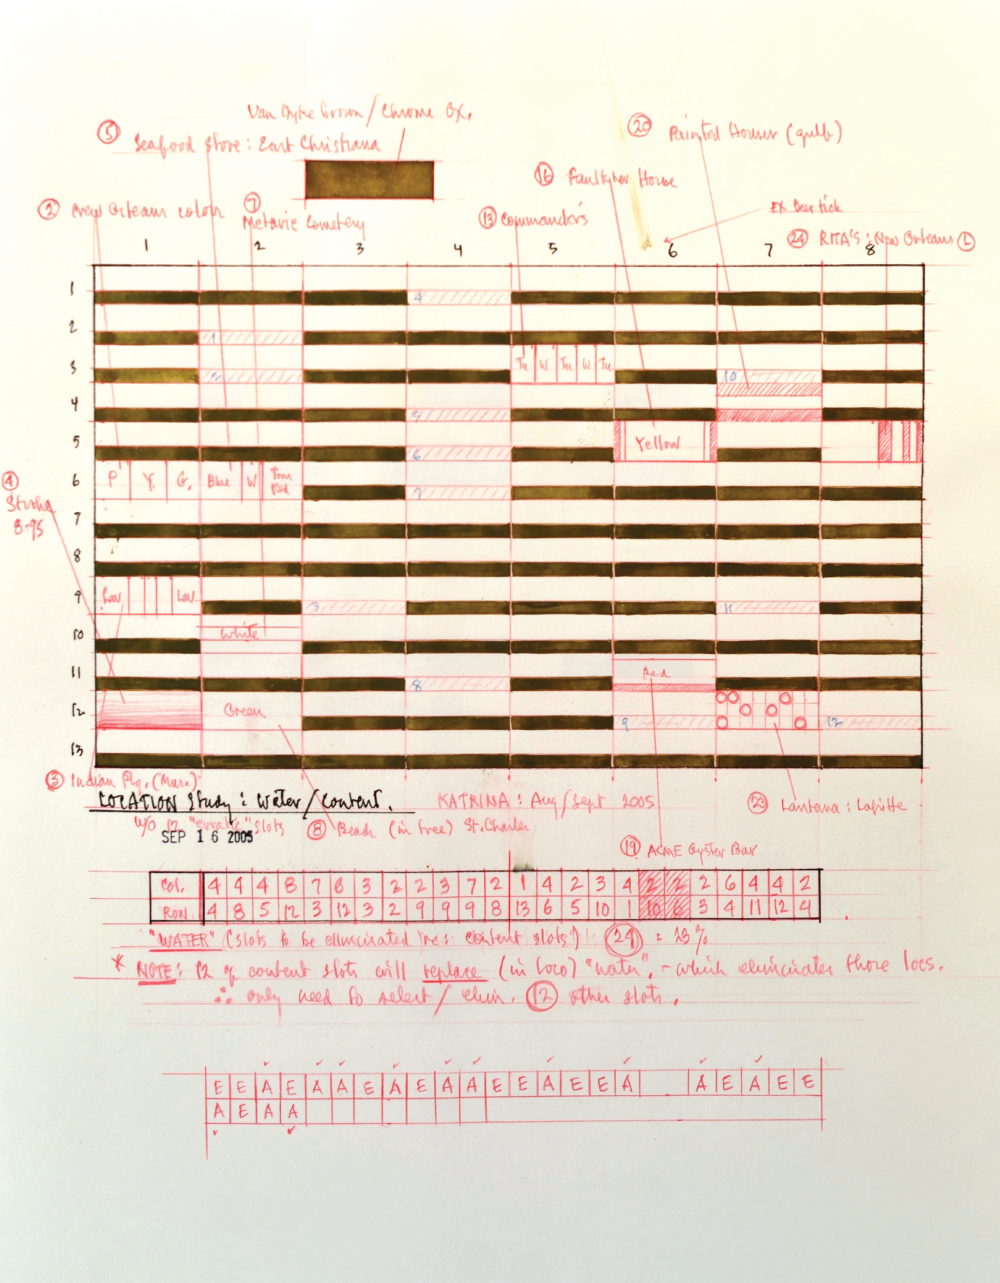 Van Dyke Brown / Chrome Ox.
5 Seafood Store: East Christiana
20 Painted Houses (gulf)
16 Faulkner House
2 New Orleans colors
7 Metarie Cemetery
13 Commander's
24 RITA'S: New Orleans L
1 2 3 4 5 6 7 8
1
4
2
1
3
2
Tu W Tu W Tu
10
4
5
5
6
Yellow
6
P Y. G. Blue W
7
4
7
8
9
3
11
10
White
11
8
Red
12
Green
9
12
13
3 Indian
LOCATION Study: Water/Content.
KATRINA: Aug/Sept 2005
23 Lantana: Lafitte
w/o 12 slots
SEP 16 2005
8 Beads (in tree) St. Charles
19 ACME Oyster Bar
COL. 4 4 4 8 7 6 3 2 2 3 7 2 1 4 2 3 4 2 2 2 6 4 4 2
ROW. 4 8 5 12 3 12 3 2 9 9 9 8 13 6 5 10 1 10 6 3 4 11 12 4
"WATER" (slots to be eliminated re: content slots): 24 = 23%
* NOTE: 12 of content slots will replace (in loco) "water", - which eliminates those locs.
∴ only need to select/elim. 12 other slots.
E E A E A A E A E A A E E A E E A A E A E E
A E A A